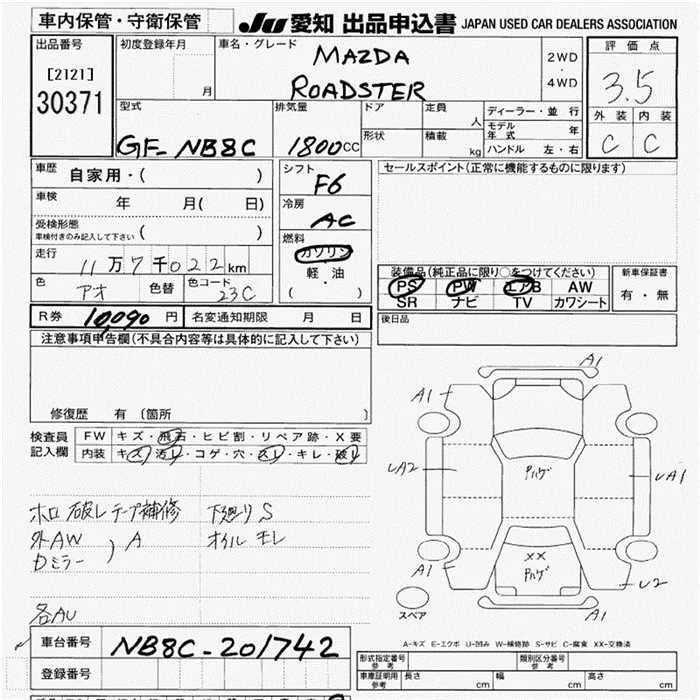 車内保管・守衛保管 JU 愛知 出品申込書 JAPAN USED CAR DEALERS ASSOCIATION
出品番号 初度登録年月 車名・グレード MAZDA 2WD 評価点
[2121] 月 ROADSTER ・ 4WD 3.5
30371 型式 排気量 ドア 定員 人 ディーラー・並行 外装 内装
GF-NB8C 1800CC 形状 積載 kg モデル年式 年 C C
ハンドル 左・右
車歴 自家用・( ) シフト F6 セールスポイント(正常に機能するものに限ります)
車検 年 月( 日) 冷房 AC
受検形態 ( )
車検付きのみ記入して下さい
走行 11万7千022km 燃料 ガソリン
色 アオ 色替 色コード 23C 軽・油
( )
装備品(純正品に限り○をつけてください) 新車保証書
PS PW エアB AW 有・無
SR ナビ TV カワシート
R券 10,090 円 名変通知期限 月 日 後日品
注意事項申告欄(不具合内容等は具体的に記入して下さい)
修復歴 有 〔箇所 〕
検査員 FW キズ・飛石・ヒビ割・リペア跡・X要
記入欄 内装 キズ・汚レ・コゲ・穴・スレ・キレ・破レ
ホロ 破レ テープ補修 下廻り S
外AW A オイル モレ
Dミラー
各AU
A1
A1
UA2 Pハゲ UA1
XX
A1 Pハゲ U2
スペア A1
A-キズ E-エクボ U-凹み W-補修跡 S-サビ C-腐食 XX-交換済
車台番号 NB8C-201742
登録番号
形式指定番号 参考 類別区分番号 参考
車庫証明用 参考 長さ cm 幅 cm 高さ cm